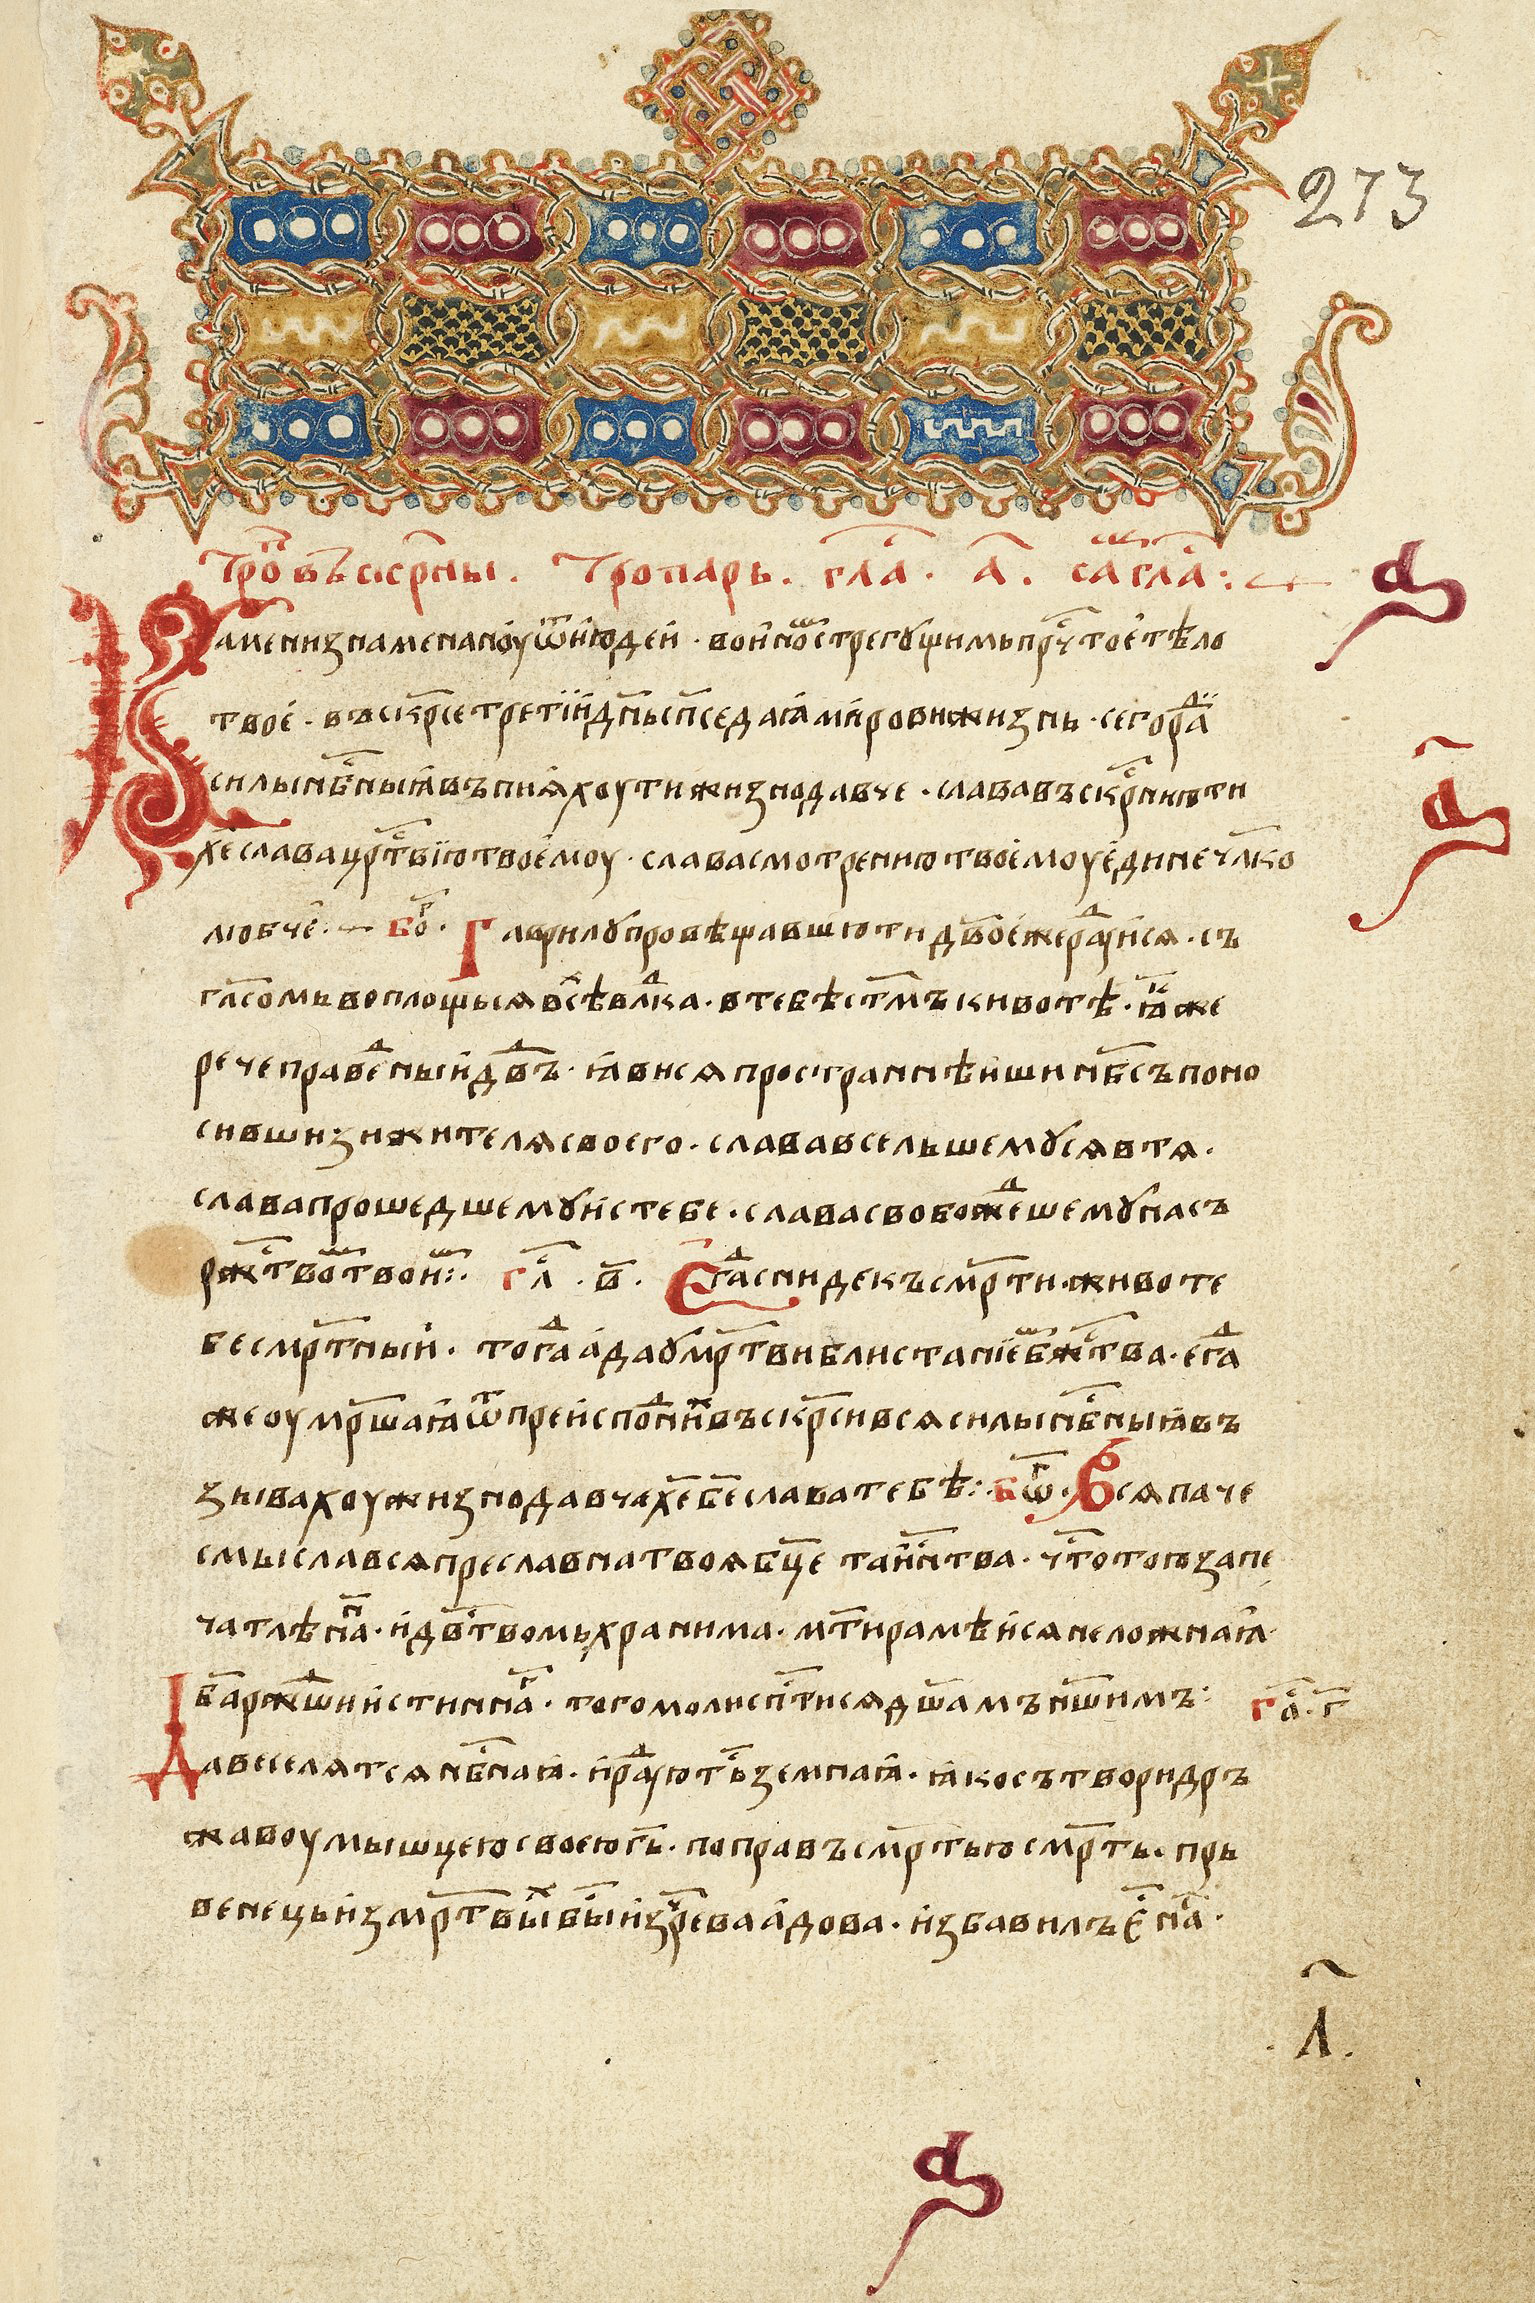 273
Трⷪ҇п въскр҇сны. Тропарь. гла҇. а҃. сⷲ҇а гла҇:
Камени знаменаноу ѿ їюдей · воиномⷨ стрегꙋщимь прч҇тое тѣло
твое · въскрⷭ҇е третїи дн҃ь сп҃се даꙗ мирови жизнь · сего рⷣаи
силы нбⷭ҇ныꙗ въпиꙗхоу ти жизнодавче · слава въскрⷭ҇нию ти
хе҃ слава црⷭ҇твїю твоемоу · слава смотрению твоемоу едине чл҃ко
любче · боⷢ҇ · Гаврилꙋ провѣщавшю ти дв҃о еже рⷣауйся · съ
гла҃сомь воплощьшѧ всѣⷯ влⷣка · в тебѣ ст҃мъ кивотѣ · ꙗⷦ҇же
рече правеⷣныи дв҃дъ · ꙗвися пространнѣиши нб҃съ поно
сивши зижителя своего · слава всельшемꙋся в тя ·
слава прошедшемꙋ ис тебе · слава свобожⷣешемꙋ насъ
ржⷭ҇твомⷨ твоимⷨ: гл҇ · в҃ · Егⷣа сниде къ смр҃ти · животе
бесмр҃тныи · тогⷣа ада ꙋмр҃тви блистаниемⷨ бжⷭ҇тва · егⷣа
же оумрⷲ҇аꙗ ѿ преисподⷣниⷯ въскр҃си вся силы нбⷭ҇ныꙗ въ
зывахоу жизнодавче хе҃ бе҃ слава тебѣ: боⷢ҇ · Вся паче
смысла вся преславна твоя бц҃е таинⷭ҇тва · чⷭ҇тотою запе
чатлѣнⷩ҇а · и дв҃ⷭтвомь хранима · мт҃и разⷨмѣися неложнаꙗ ·
ба҃ ржⷣши истиннаⷢ҇ · того моли спⷭ҇тися дш҃амъ нш҃имъ: гла҇ · г҃
Да веселятся нбⷭ҇наꙗ · и рⷣауютьⷭ҇ земнаꙗ · ꙗко сътвори дръ
жавоу мышцею своею гь҃ · поправъ смр҃тью смр҃ть · прь
венець из мр҃твыⷯ быⷭ҇ из чрева адова · избавилъ ё наⷭ҇ ·
л҃.